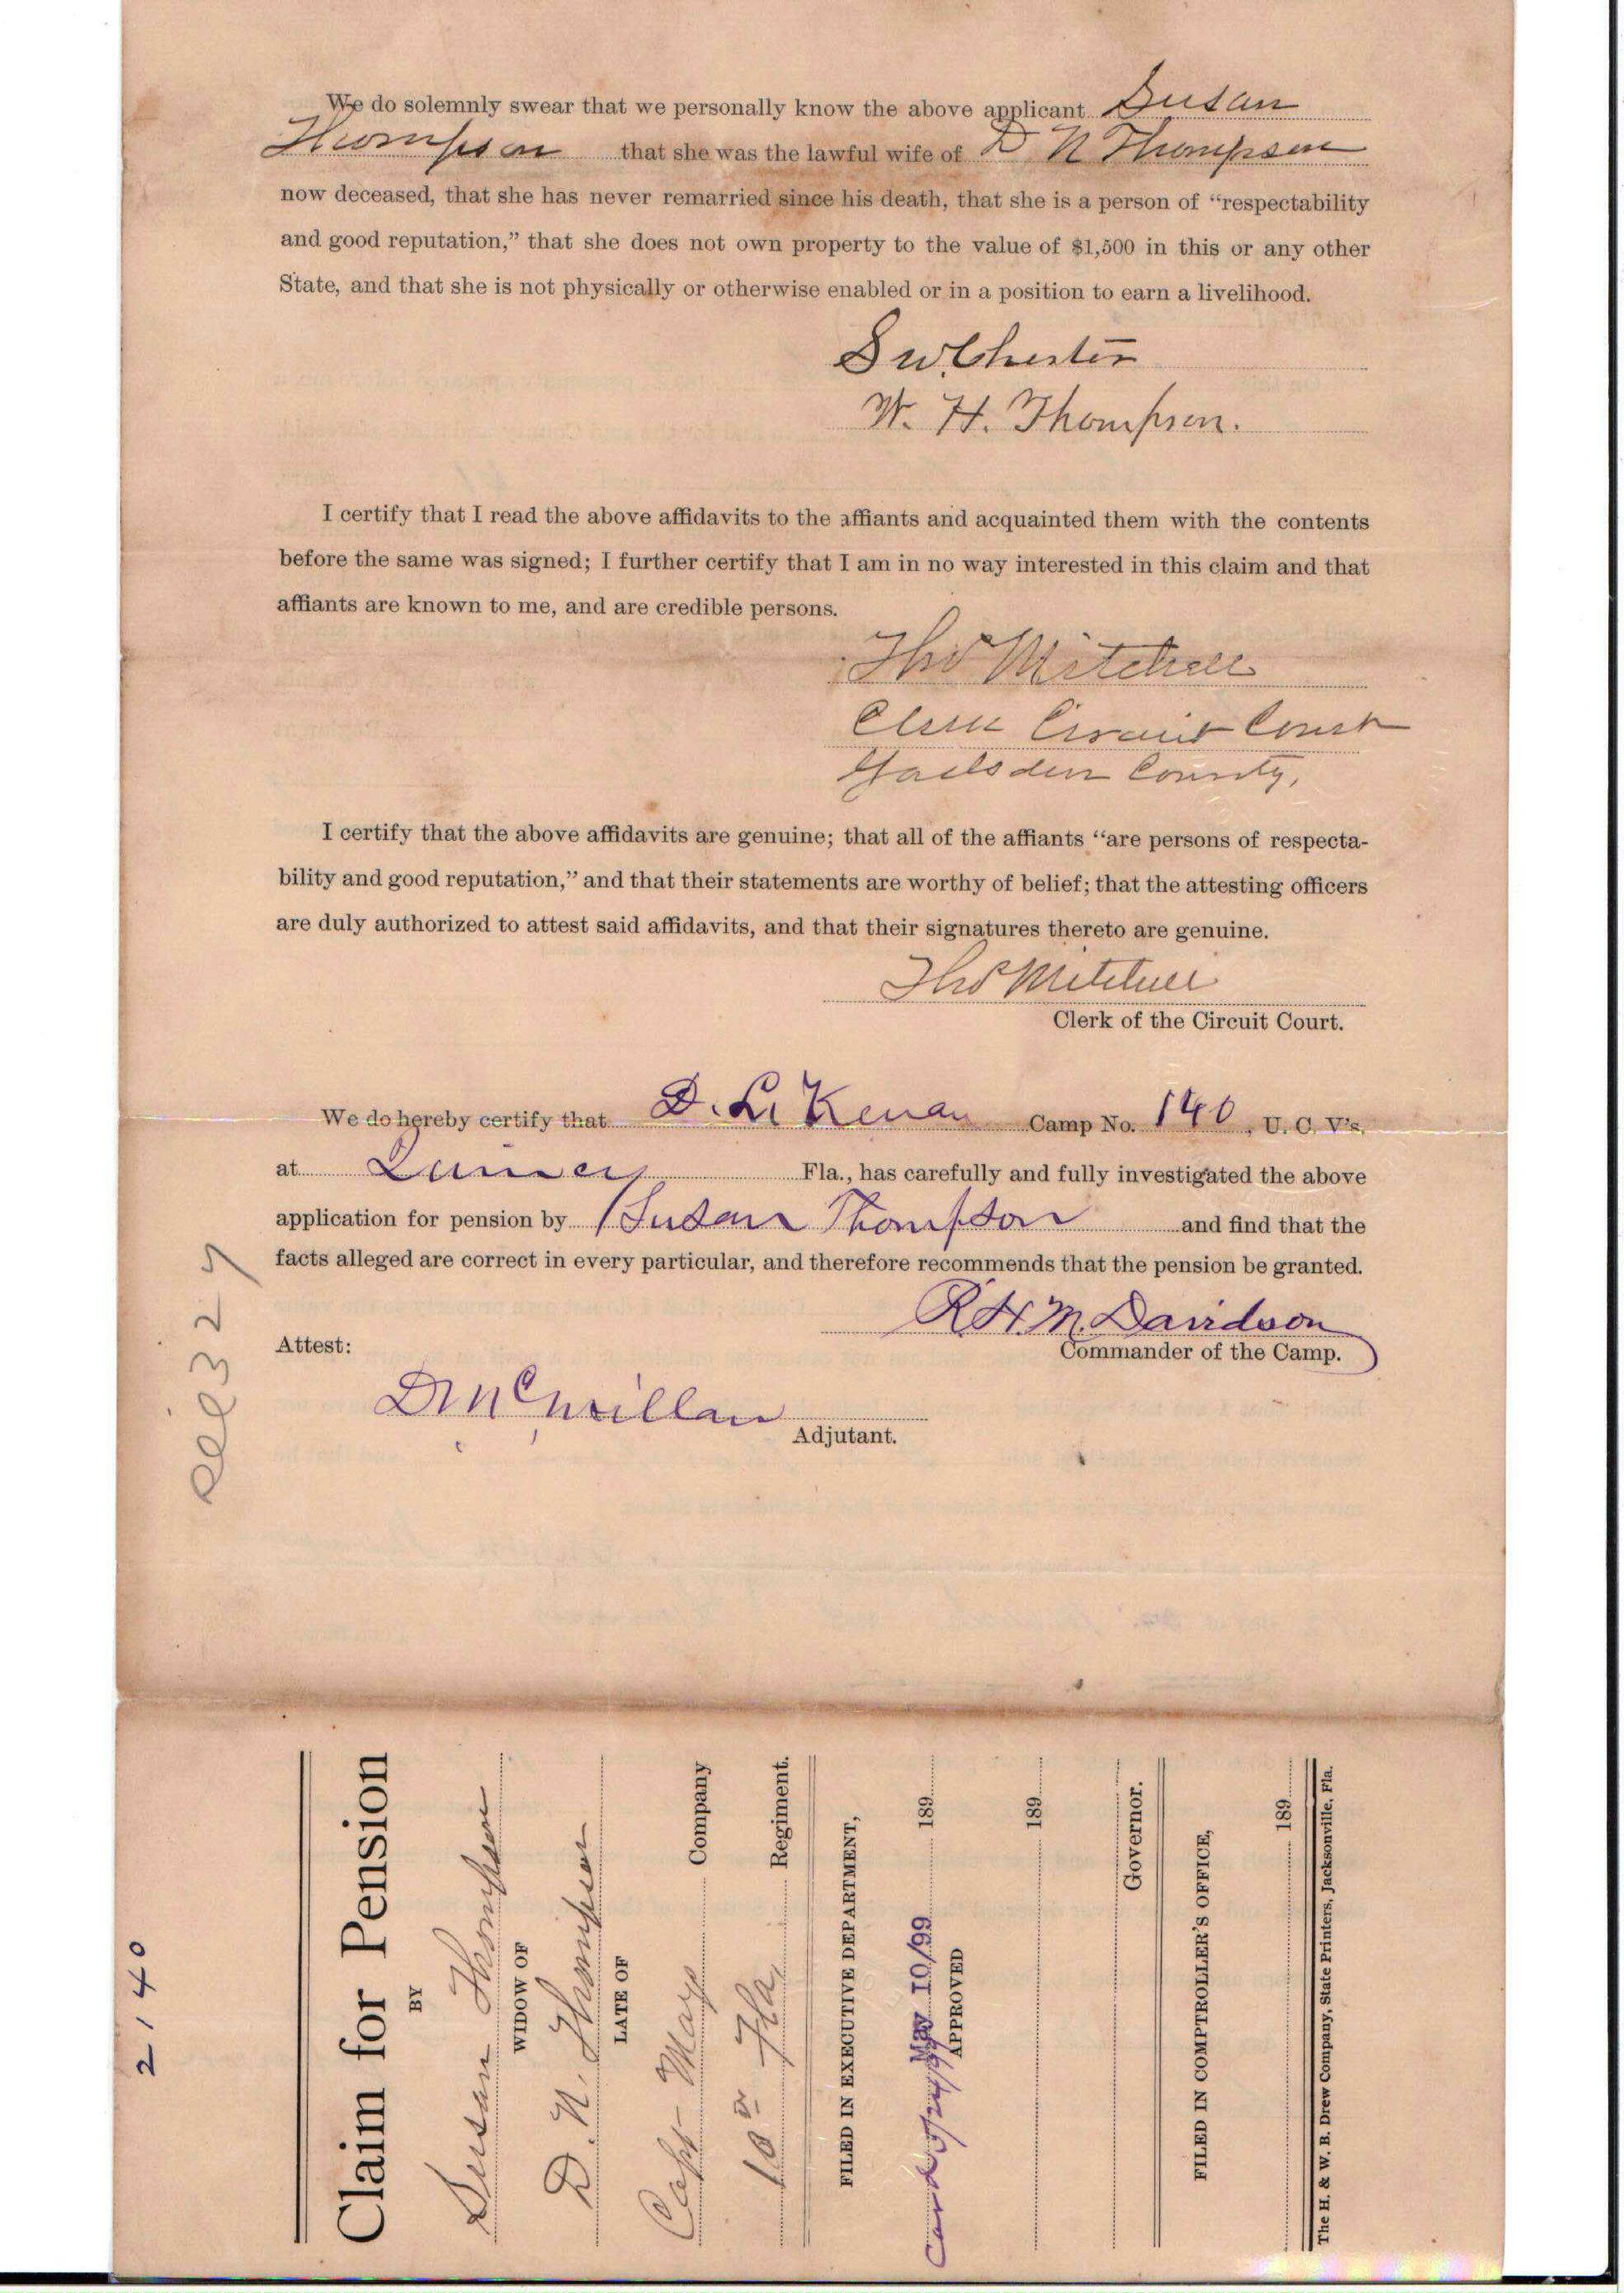 We do solemnly swear that we personally know the above applicant Susan
Thompson that she was the lawful wife of D N Thompson
now deceased, that she has never remarried since his death, that she is a person of “respectability
and good reputation,” that she does not own property to the value of $1,500 in this or any other
State, and that she is not physically or otherwise enabled or in a position to earn a livelihood.
S W Chester
W. H. Thompson.
I certify that I read the above affidavits to the affiants and acquainted them with the contents
before the same was signed; I further certify that I am in no way interested in this claim and that
affiants are known to me, and are credible persons.
Thos Mitchell
Clerk Circuit Court
Gadsden County,
I certify that the above affidavits are genuine; that all of the affiants “are persons of respecta-
bility and good reputation,” and that their statements are worthy of belief; that the attesting officers
are duly authorized to attest said affidavits, and that their signatures thereto are genuine.
Thos Mitchell
Clerk of the Circuit Court.
We do hereby certify that D. L. Kenan Camp No. 140, U. C. V's,
at Quincy Fla., has carefully and fully investigated the above
application for pension by Susan Thompson and find that the
facts alleged are correct in every particular, and therefore recommends that the pension be granted.
R H. M. Davidson
Commander of the Camp.
Attest:
D McMillan
Adjutant.
2140
Claim for Pension
BY
Susan Thompson
WIDOW OF
D. N. Thompson
LATE OF
Capt Mays Company
10th Fla, Regiment.
FILED IN EXECUTIVE DEPARTMENT,
May 10/99 189
APPROVED
189
Governor.
FILED IN COMPTROLLER'S OFFICE,
189
The H. & W. B. Drew Company, State Printers, Jacksonville, Fla.